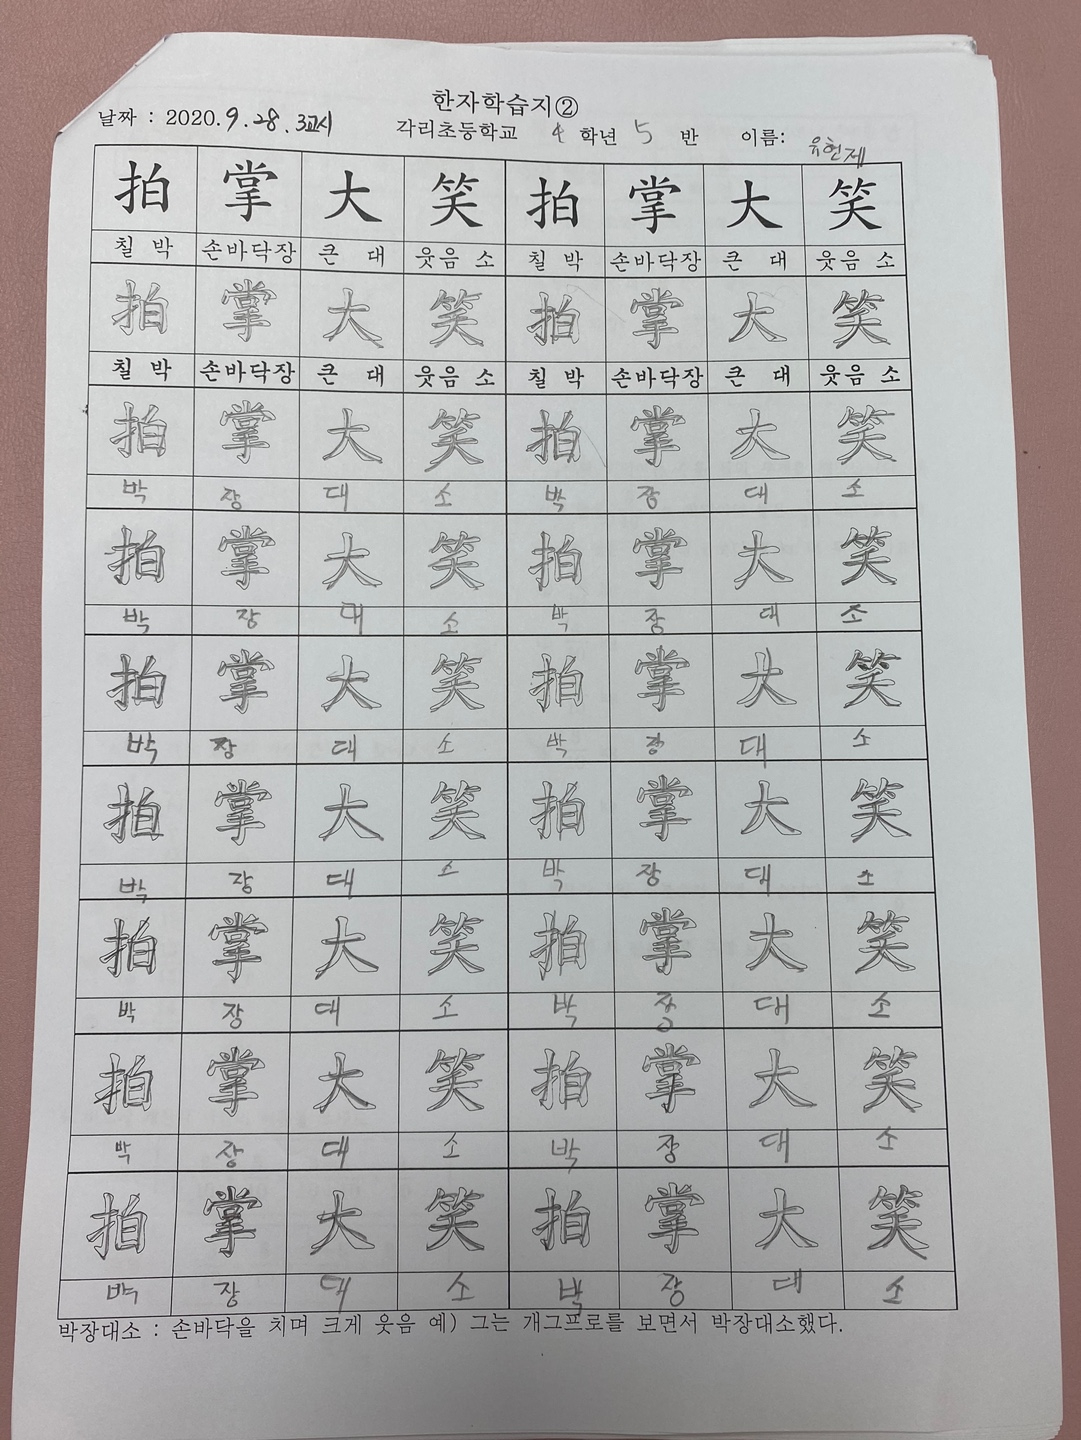 한자학습지②
날짜 : 2020.9.28.3교시 각리초등학교 4 학년 5 반 이름: 유현제
拍 掌 大 笑 拍 掌 大 笑
칠 박 손바닥장 큰 대 웃음 소 칠 박 손바닥장 큰 대 웃음 소
拍 掌 大 笑 拍 掌 大 笑
칠 박 손바닥장 큰 대 웃음 소 칠 박 손바닥장 큰 대 웃음 소
拍 掌 大 笑 拍 掌 大 笑
박 장 대 소 박 장 대 소
拍 掌 大 笑 拍 掌 大 笑
박 장 대 소 박 장 대 소
拍 掌 大 笑 拍 掌 大 笑
박 장 대 소 박 장 대 소
拍 掌 大 笑 拍 掌 大 笑
박 장 대 소 박 장 대 소
拍 掌 大 笑 拍 掌 大 笑
박 장 대 소 박 장 대 소
拍 掌 大 笑 拍 掌 大 笑
박 장 대 소 박 장 대 소
拍 掌 大 笑 拍 掌 大 笑
박 장 대 소 박 장 대 소
박장대소 : 손바닥을 치며 크게 웃음 예) 그는 개그프로를 보면서 박장대소했다.